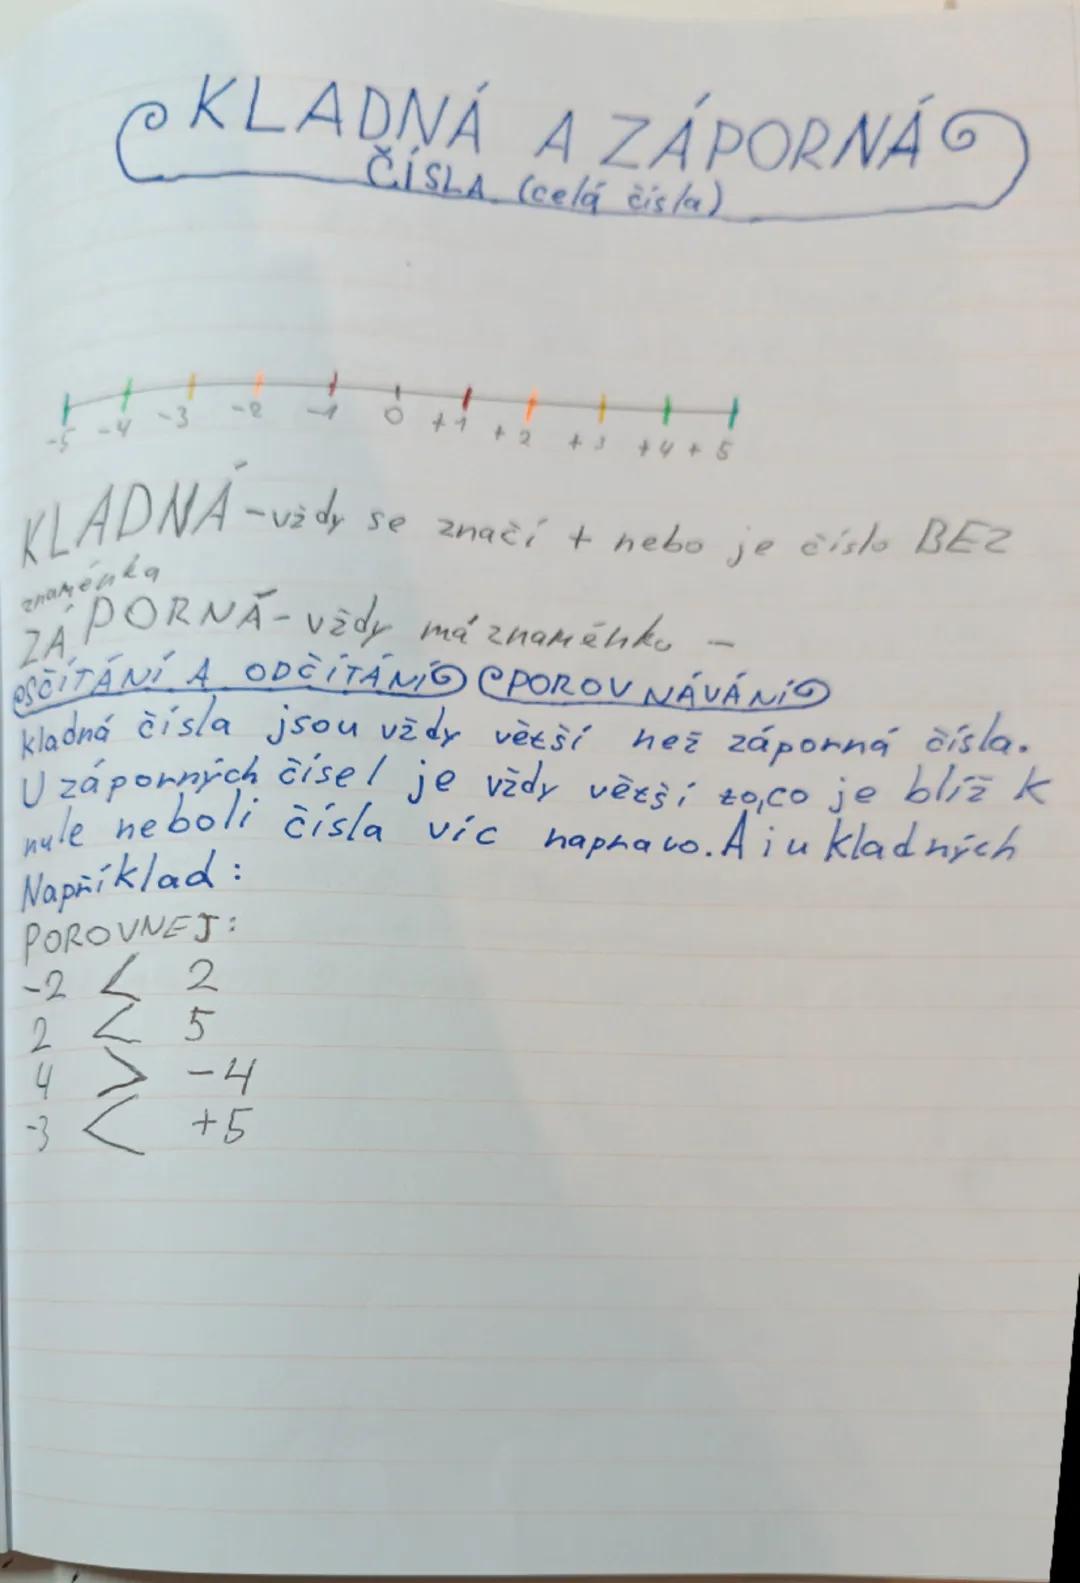 KLADNÁ A ZÁPORNÁ
ČÍSLA (celá čísla)
-5 -4 -3 -2 -1 0 +1 +2 +3 +4 +5
KLADNÁ - vždy se značí + nebo je číslo BEZ
znaménka
ZÁPORNÁ - vždy má znaménko -
SČÍTÁNÍ A ODČÍTÁNÍ POROVNÁVÁNÍ
kladná čísla jsou vždy větší než záporná čísla.
U záporných čísel je vždy větší to,co je blíž k
nule neboli čísla víc napravo. A i u kladných
Například:
POROVNEJ:
-2 < 2
2 < 5
4 > -4
-3 < +5